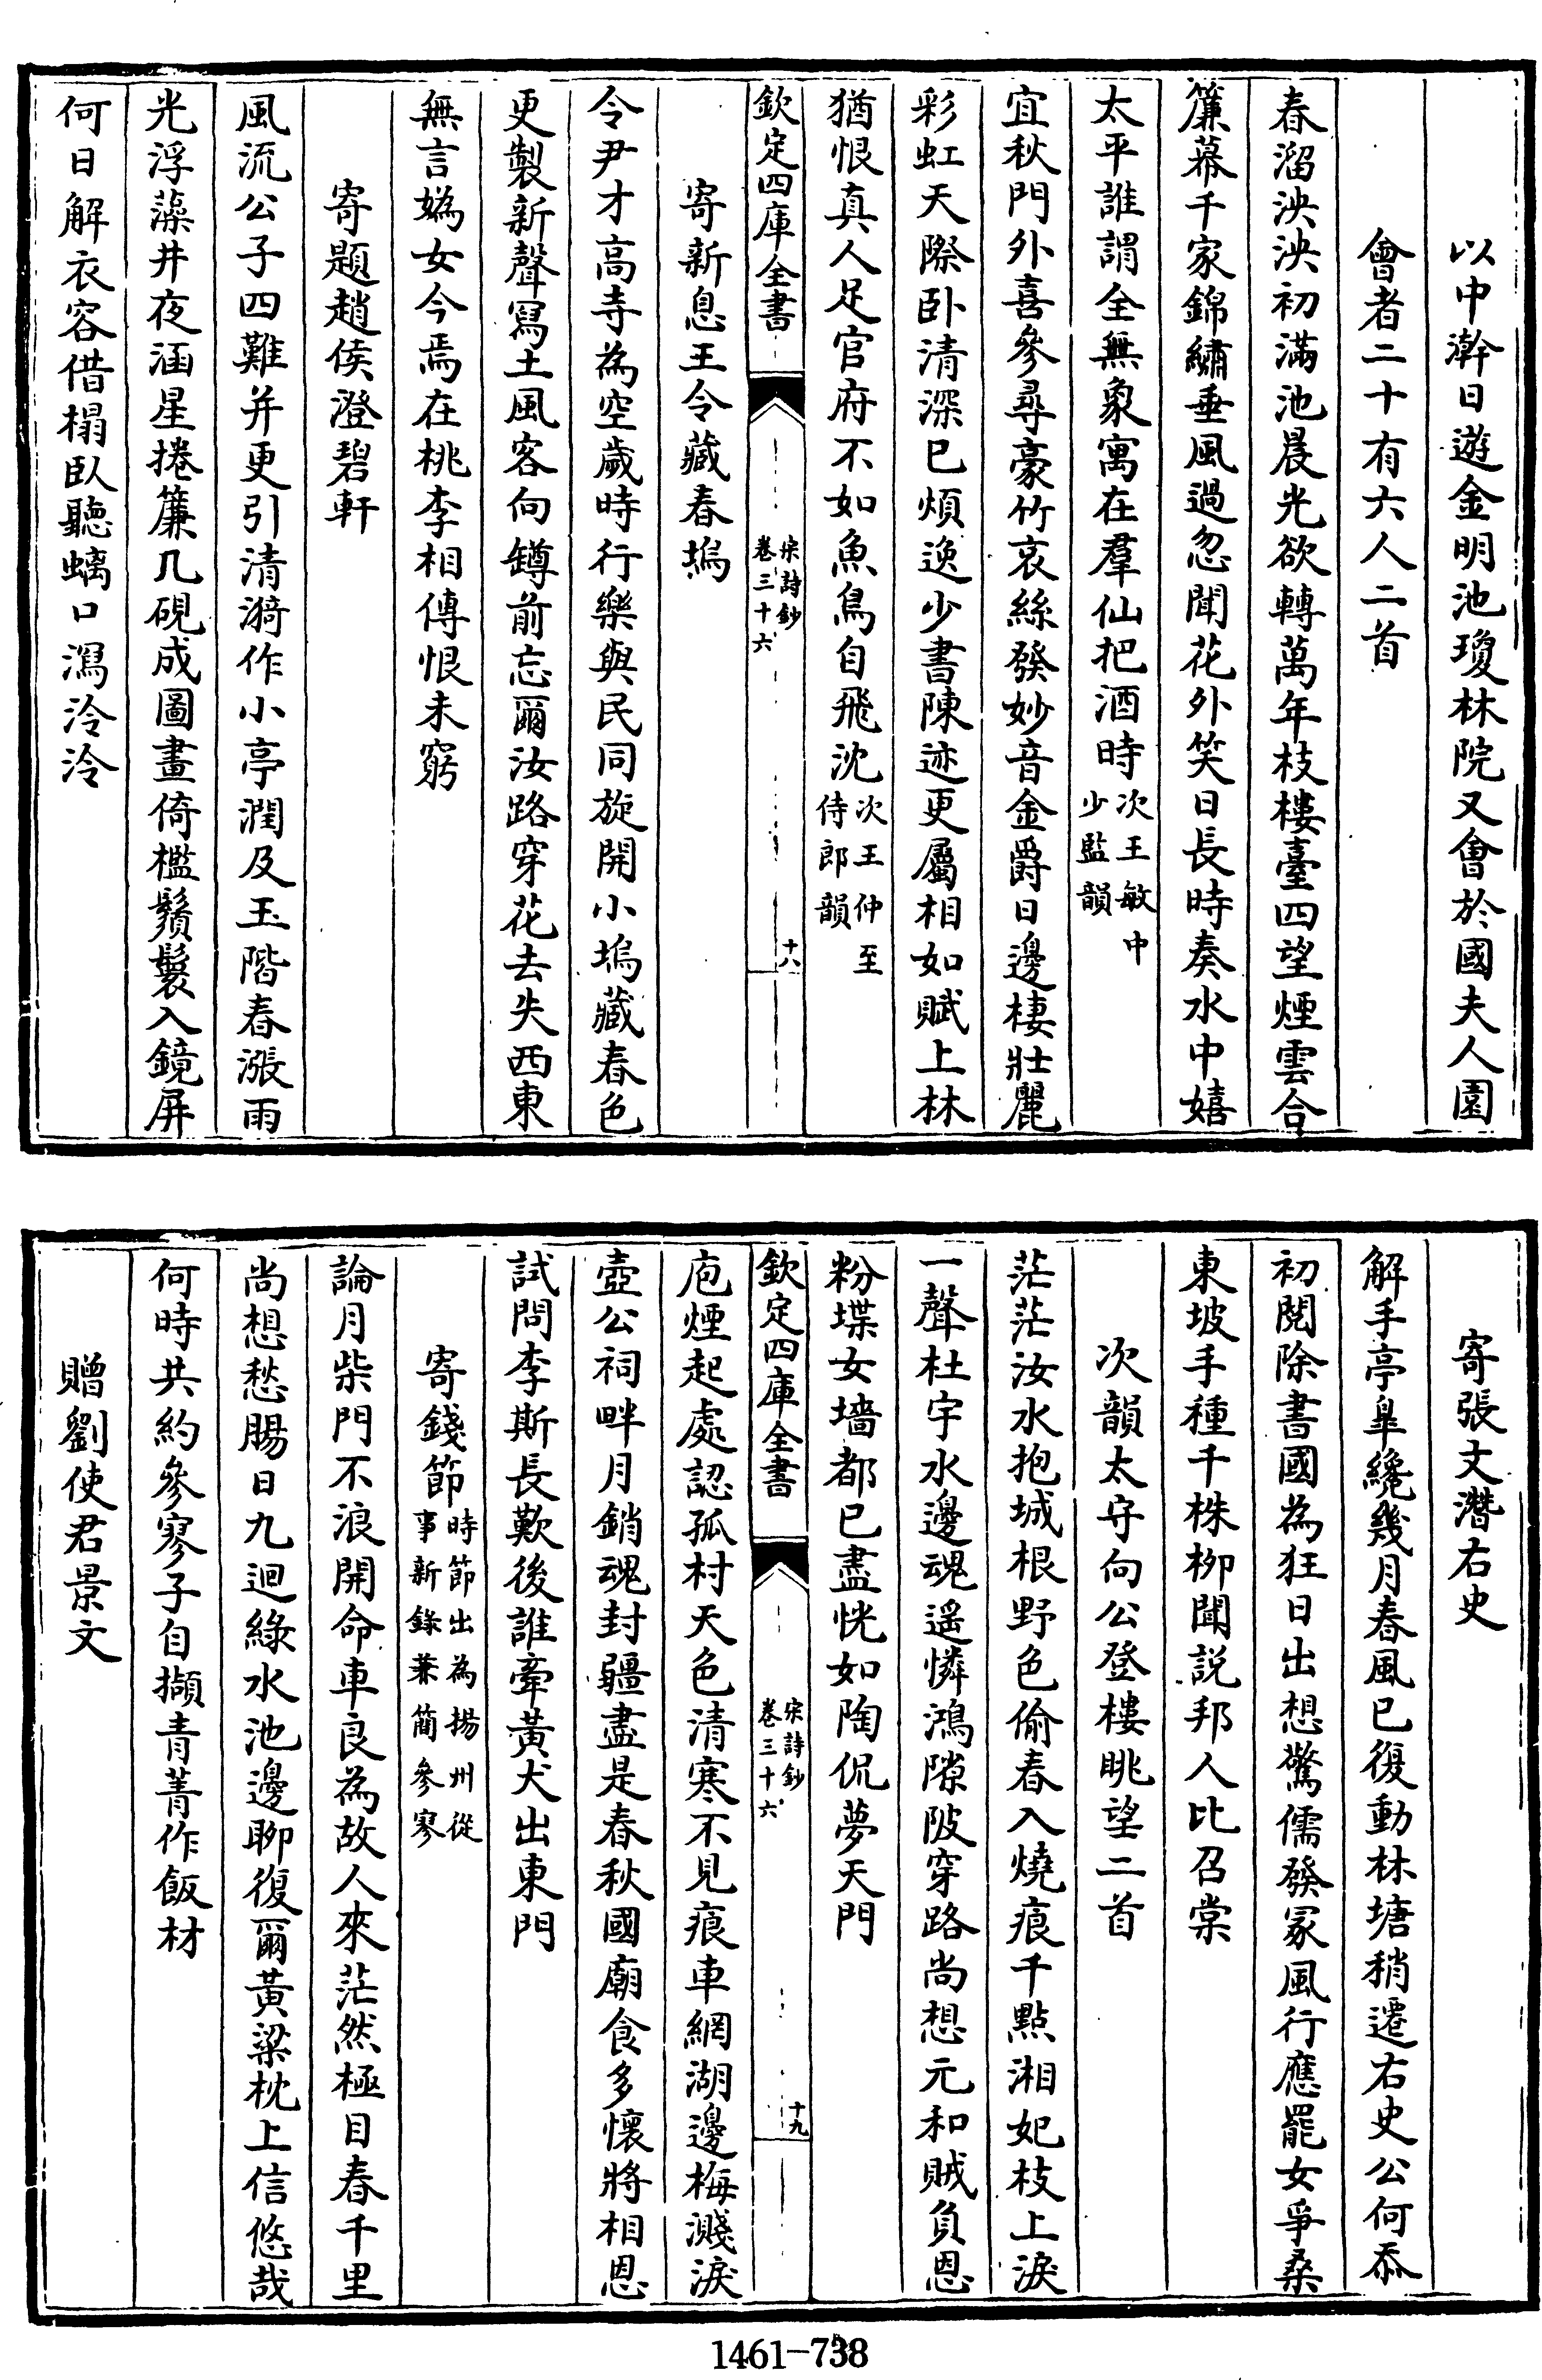 以中澣日遊金明池瓊林院又會於國夫人園
會者二十有六人二首
春溜泱泱初滿池晨光欲轉萬年枝樓臺四望煙雲合
簾幕千家錦繡垂風過忽聞花外笑日長時奏水中嬉
太平誰謂全無象寓在羣仙把酒時次王敏中少監韻
宜秋門外喜參尋豪竹哀絲發妙音金爵日邊棲壯麗
彩虹天際卧清深已煩逸少書陳迹更屬相如賦上林
猶恨真人足官府不如魚鳥自飛沈次王仲至侍郎韻
欽定四庫全書 宋詩鈔 卷三十六 十八
寄新息王令藏春塢
令尹才高寺為空歲時行樂與民同旋開小塢藏春色
更製新聲寫土風客向罇前忘爾汝路穿花去失西東
無言媯女今焉在桃李相傳恨未窮
寄題趙侯澄碧軒
風流公子四難并更引清漪作小亭潤及玉階春漲雨
光浮藻井夜涵星捲簾几硯成圖畫倚檻鬚鬟入鏡屏
何日解衣容借榻臥聽螭口瀉泠泠
寄張文潛右史
解手亭臯纔幾月春風已復動林塘稍遷右史公何忝
初閱除書國為狂日出想驚儒發冢風行應罷女爭桑
東坡手種千株柳聞説邦人比召棠
次韻太守向公登樓眺望二首
茫茫汝水抱城根野色偷春入燒痕千點湘妃枝上淚
一聲杜宇水邊魂遥憐鴻隙陂穿路尚想元和賊負恩
粉堞女墻都已盡恍如陶侃夢天門
欽定四庫全書 宋詩鈔 卷三十六 十九
庖煙起處認孤村天色清寒不見痕車網湖邊梅濺淚
壺公祠畔月銷魂封疆盡是春秋國廟食多懷將相恩
試問李斯長歎後誰牽黃犬出東門
寄錢節時節出為揚州從事新錄兼簡參寥
論月柴門不浪開命車良為故人來茫然極目春千里
尚想愁腸日九迴綠水池邊聊復爾黃粱枕上信悠哉
何時共約參寥子自擷青菁作飯材
贈劉使君景文
1461-738